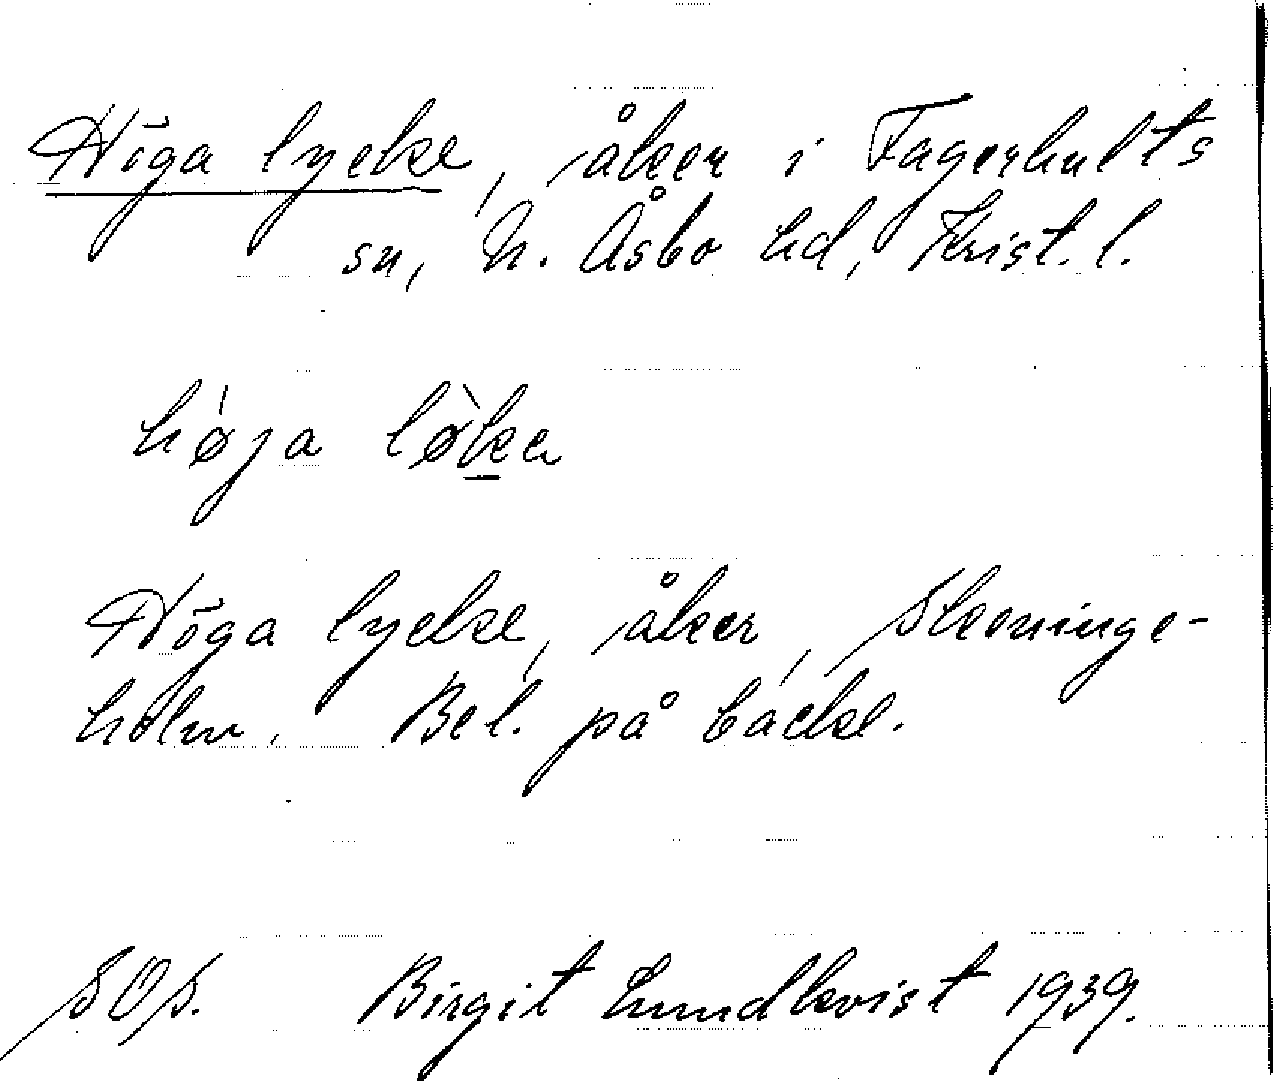 Höga lycke, åker i Fagerhults
sn, N. Åsbo hd, Krist. l.
høja løka
Höga lycke, åker, Skeninge-
holm. Bel. på backe.
SOS. Birgit Lundkvist 1939.